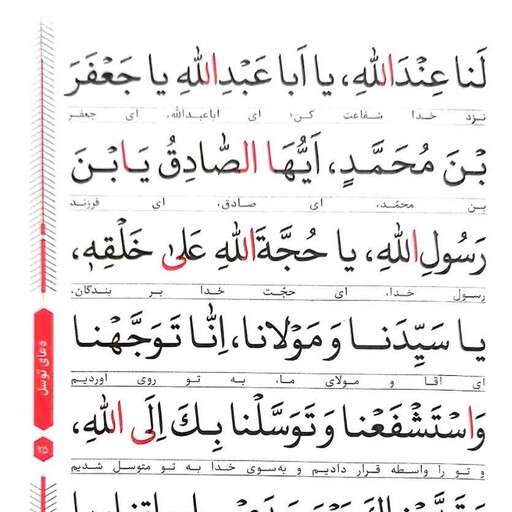 لَنا عِنْدَاللهِ، يا اَبا عَبْدِاللهِ يا جَعْفَرَ
نزد خدا شفاعت کن؛ ای اباعبدالله، ای جعفر
بْنَ مُحَمَّدٍ، اَيُّهَا الصّادِقُ يَابْنَ
بن محمّد، ای صادق، ای فرزند
رَسُولِ اللهِ، يا حُجَّةَاللهِ عَلىٰ خَلْقِهٖ،
رسول خدا، ای حجّت خدا بر بندگان،
يا سَيِّدَنا وَ مَوْلانا، اِنّا تَوَجَّهْنا
ای آقا و مولای ما، به تو روی آوردیم
وَاسْتَشْفَعْنا وَ تَوَسَّلْنا بِكَ اِلَى اللهِ،
و تو را واسطه قرار دادیم و به‌سوی خدا به تو متوسل شدیم
دعای توسل